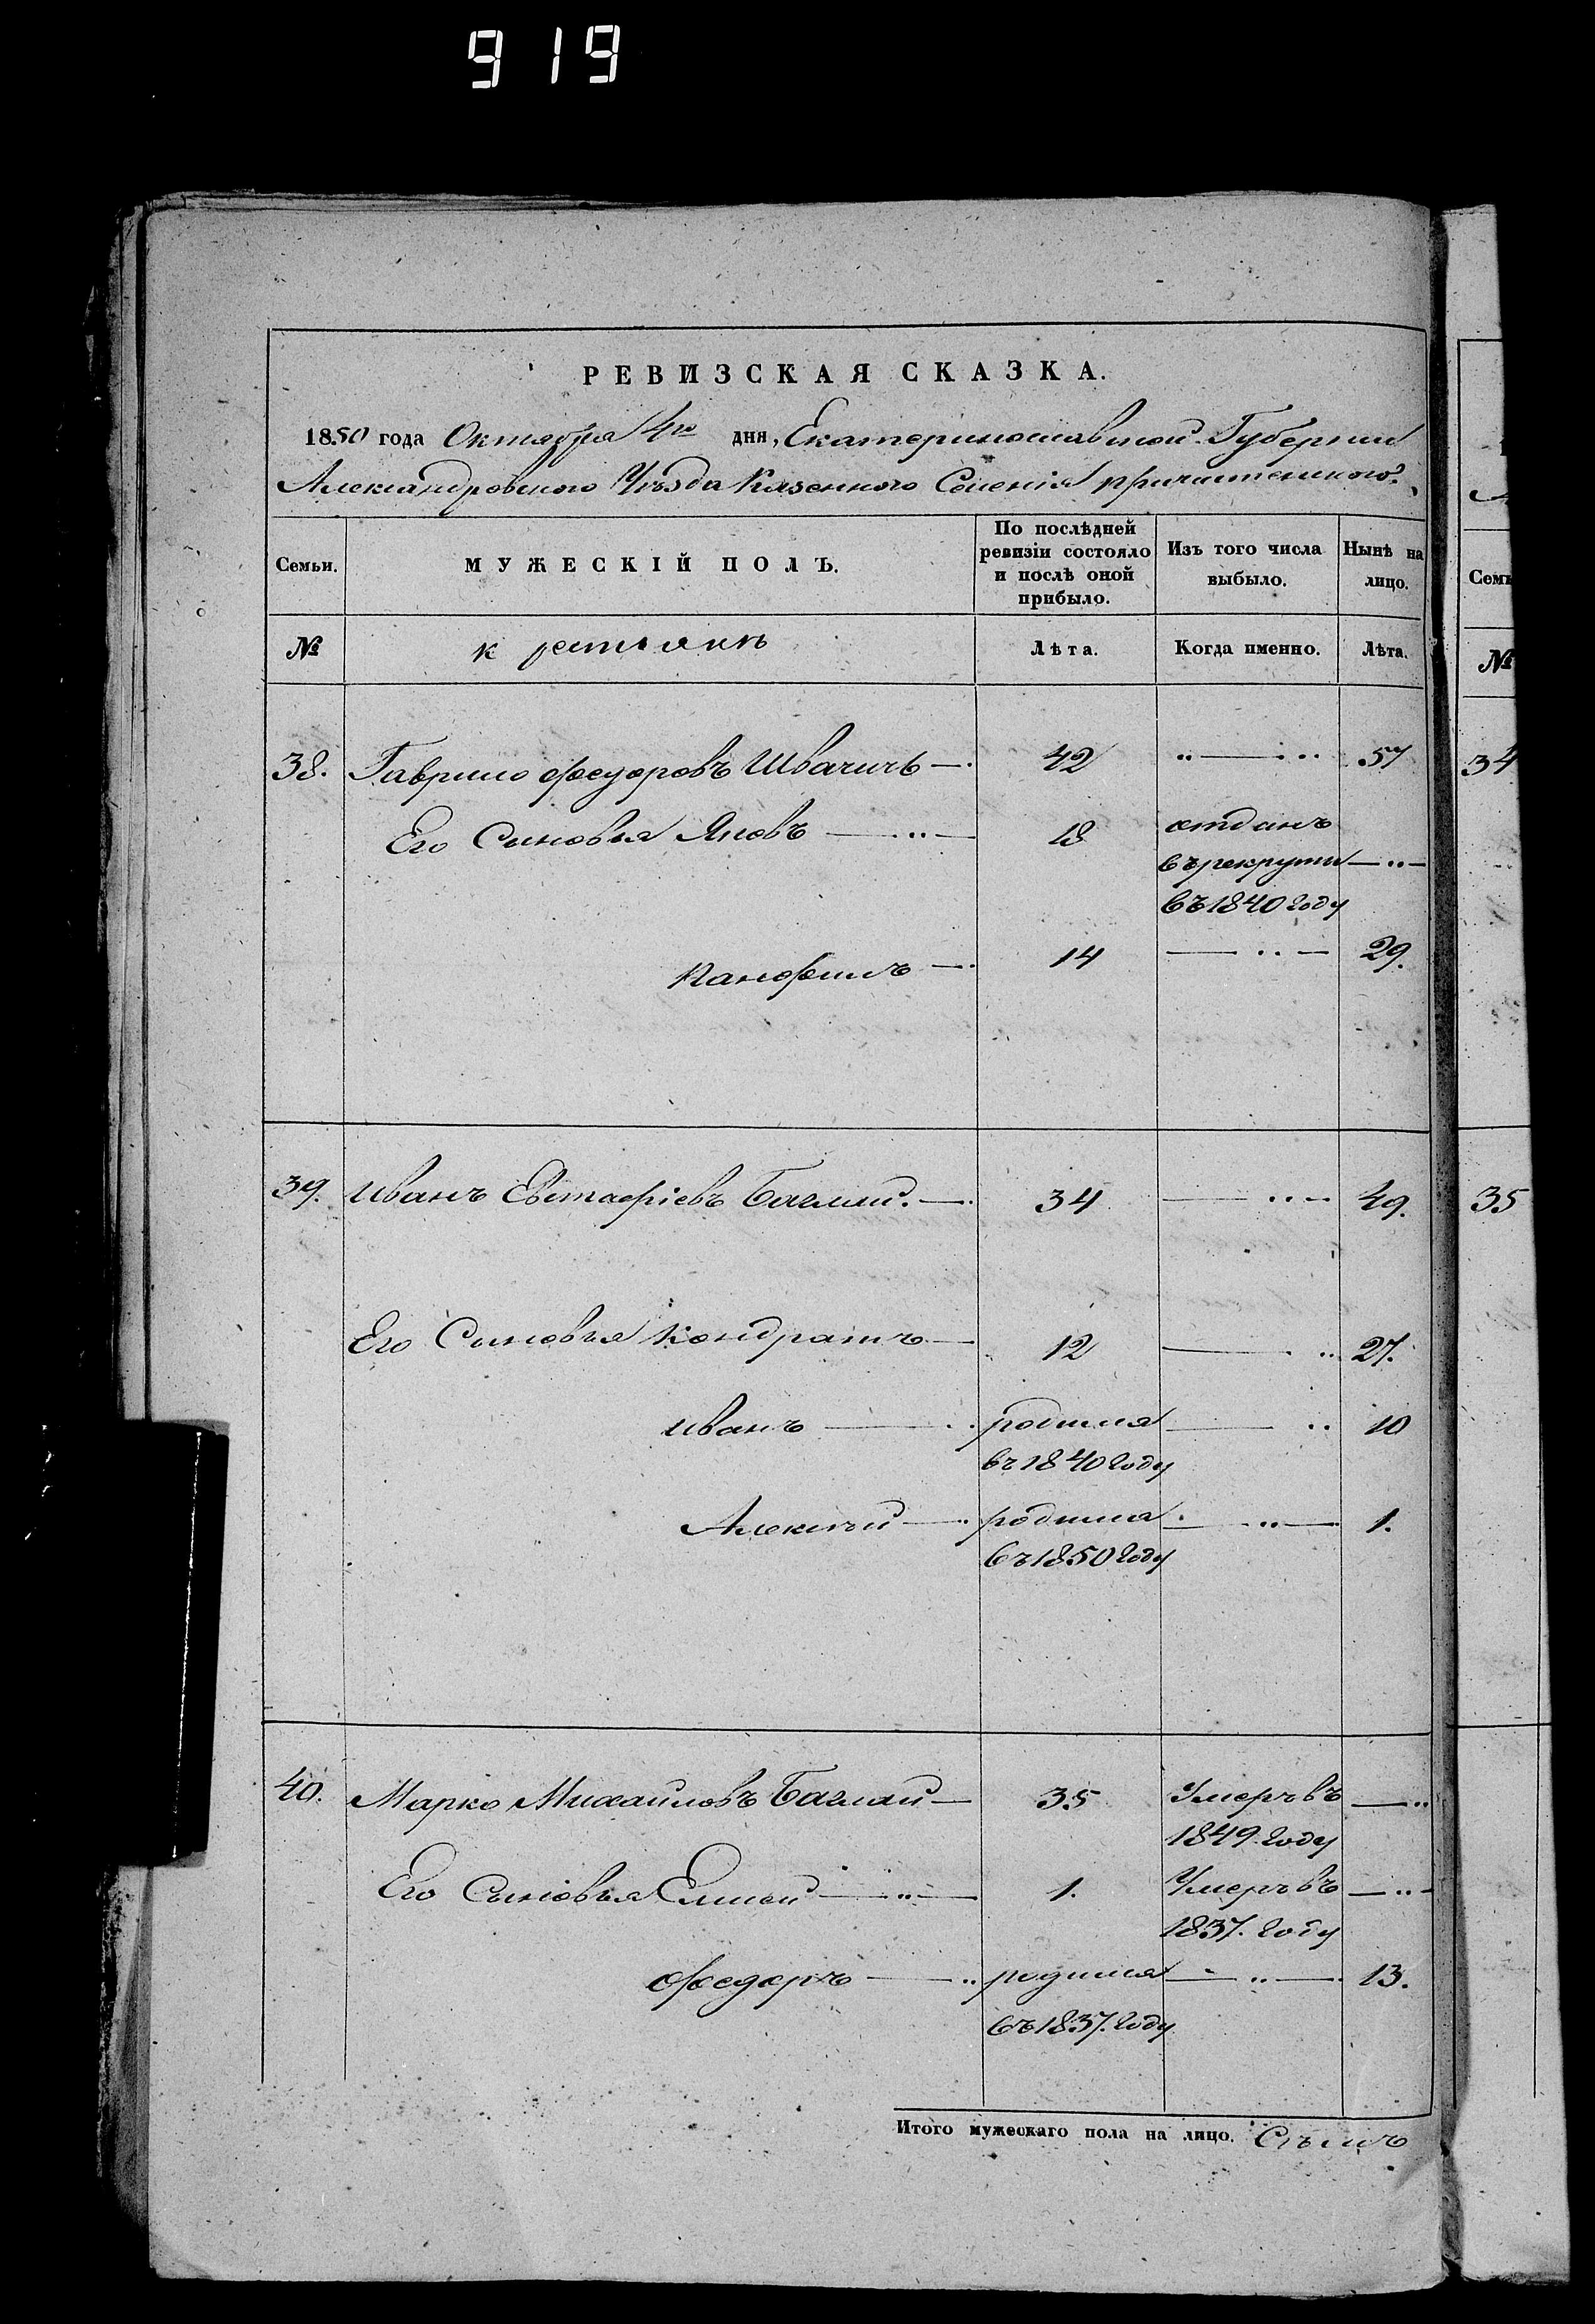 919
РЕВИЗСКАЯ СКАЗКА.
1850 года Октября 4го дня, Екатеринославской Губернии
Александровского Уѣзда Казенного Селенія Пречистенского.
Семьи. МУЖЕСКІЙ ПОЛЪ. По послѣдней ревизіи состояло и послѣ оной прибыло. Изъ того числа выбыло. Нынѣ на лицо.
№ крестьянъ Лѣта. Когда именно. Лѣта.
38. Гаврило Федоровъ Швачичь 42 57
Его Синовья Яковъ 18 отданъ
въ рекруты
въ 1840 году
Панфилъ 14 29.
39. Иванъ Евстафіевъ Баглай. 34 49.
Его Синовья Кондратъ 12 27.
Иванъ родился 10
въ 1840 году
Алексѣй родился 1.
въ 1850 году
40. Марко Михайловъ Баглай 35 Умеръ въ
1849. году
Его Сыновья Елисей 1. Умеръ въ
1837. году
Федоръ родился 13.
въ 1837. году
Итого мужескаго пола на лицо.
Семь
№
34
35